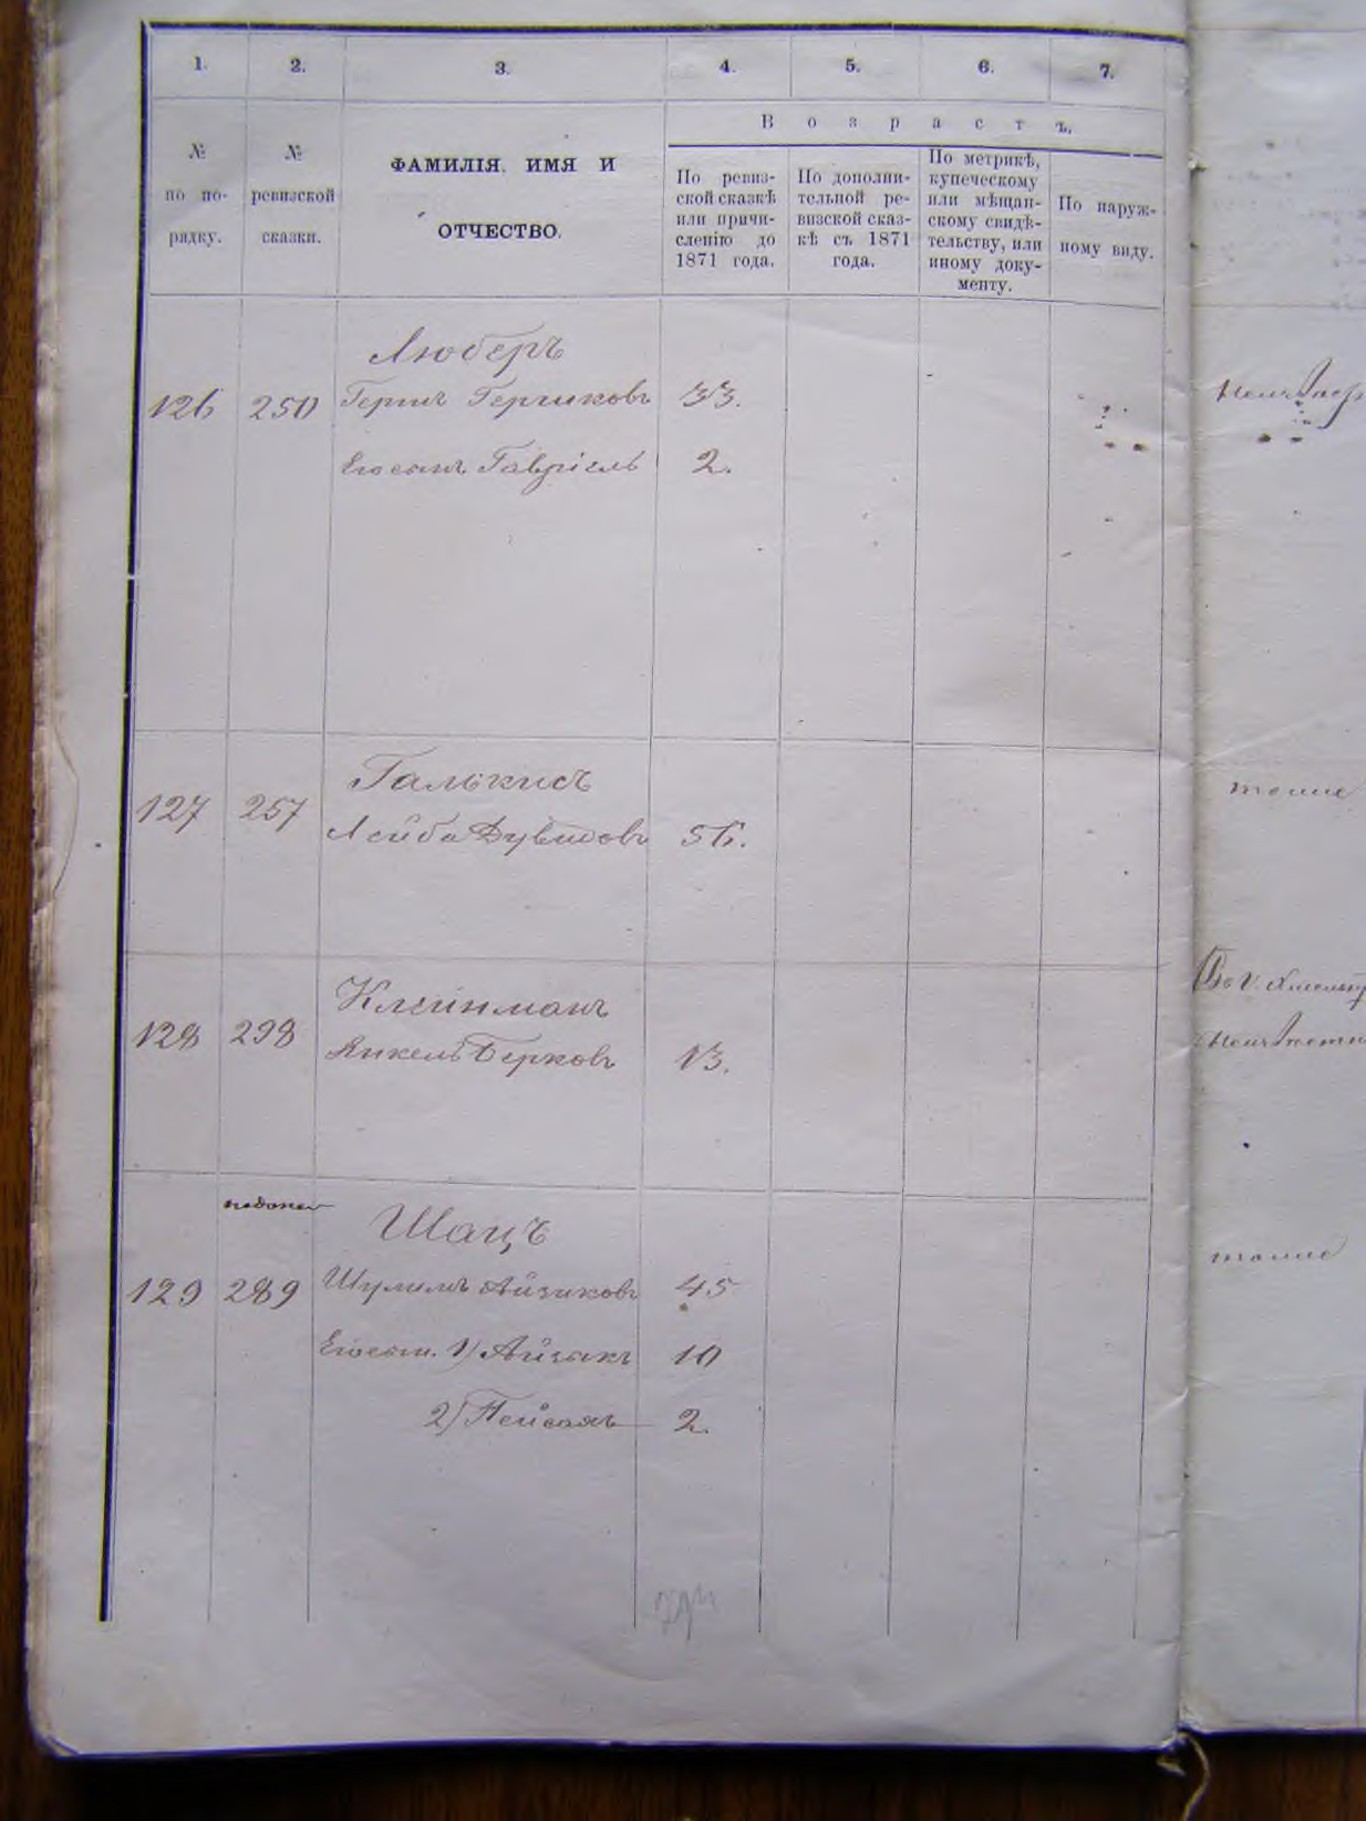 1. 2. 3. 4. 5. 6. 7.
№ по по-
рядку.
№ ревизской
сказки.
ФАМИЛІЯ. ИМЯ И
ОТЧЕСТВО.
Возрастъ.
По ревиз-
ской сказкѣ
или причи-
сленію до
1871 года.
По дополни-
тельной ре-
визской сказ-
кѣ съ 1871
года.
По метрикѣ,
купеческому
или мѣщан-
скому свидѣ-
тельству, или
иному доку-
менту.
По наруж-
ному виду.
Люберъ
126 250 Гершъ Гершковъ 33.
Его сынъ Гавріель 2.
Галькисъ
127 257 Лейба Дувидовъ 56.
тоше
Клейнманъ
128 298 Янкель Берковъ 13.
Шацъ
129 289 Шулимъ Айзиковъ 45
Его сын. 1) Айзикъ 10
2) Пейсахъ 2.